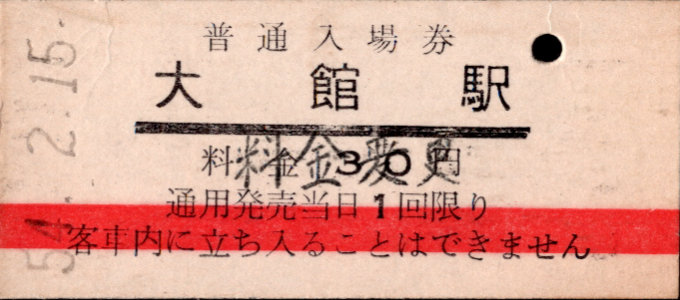 普通入場券
大館駅
料金30円
料金変更
通用発売当日1回限り
客車内に立ち入ることはできません
54.2.15.